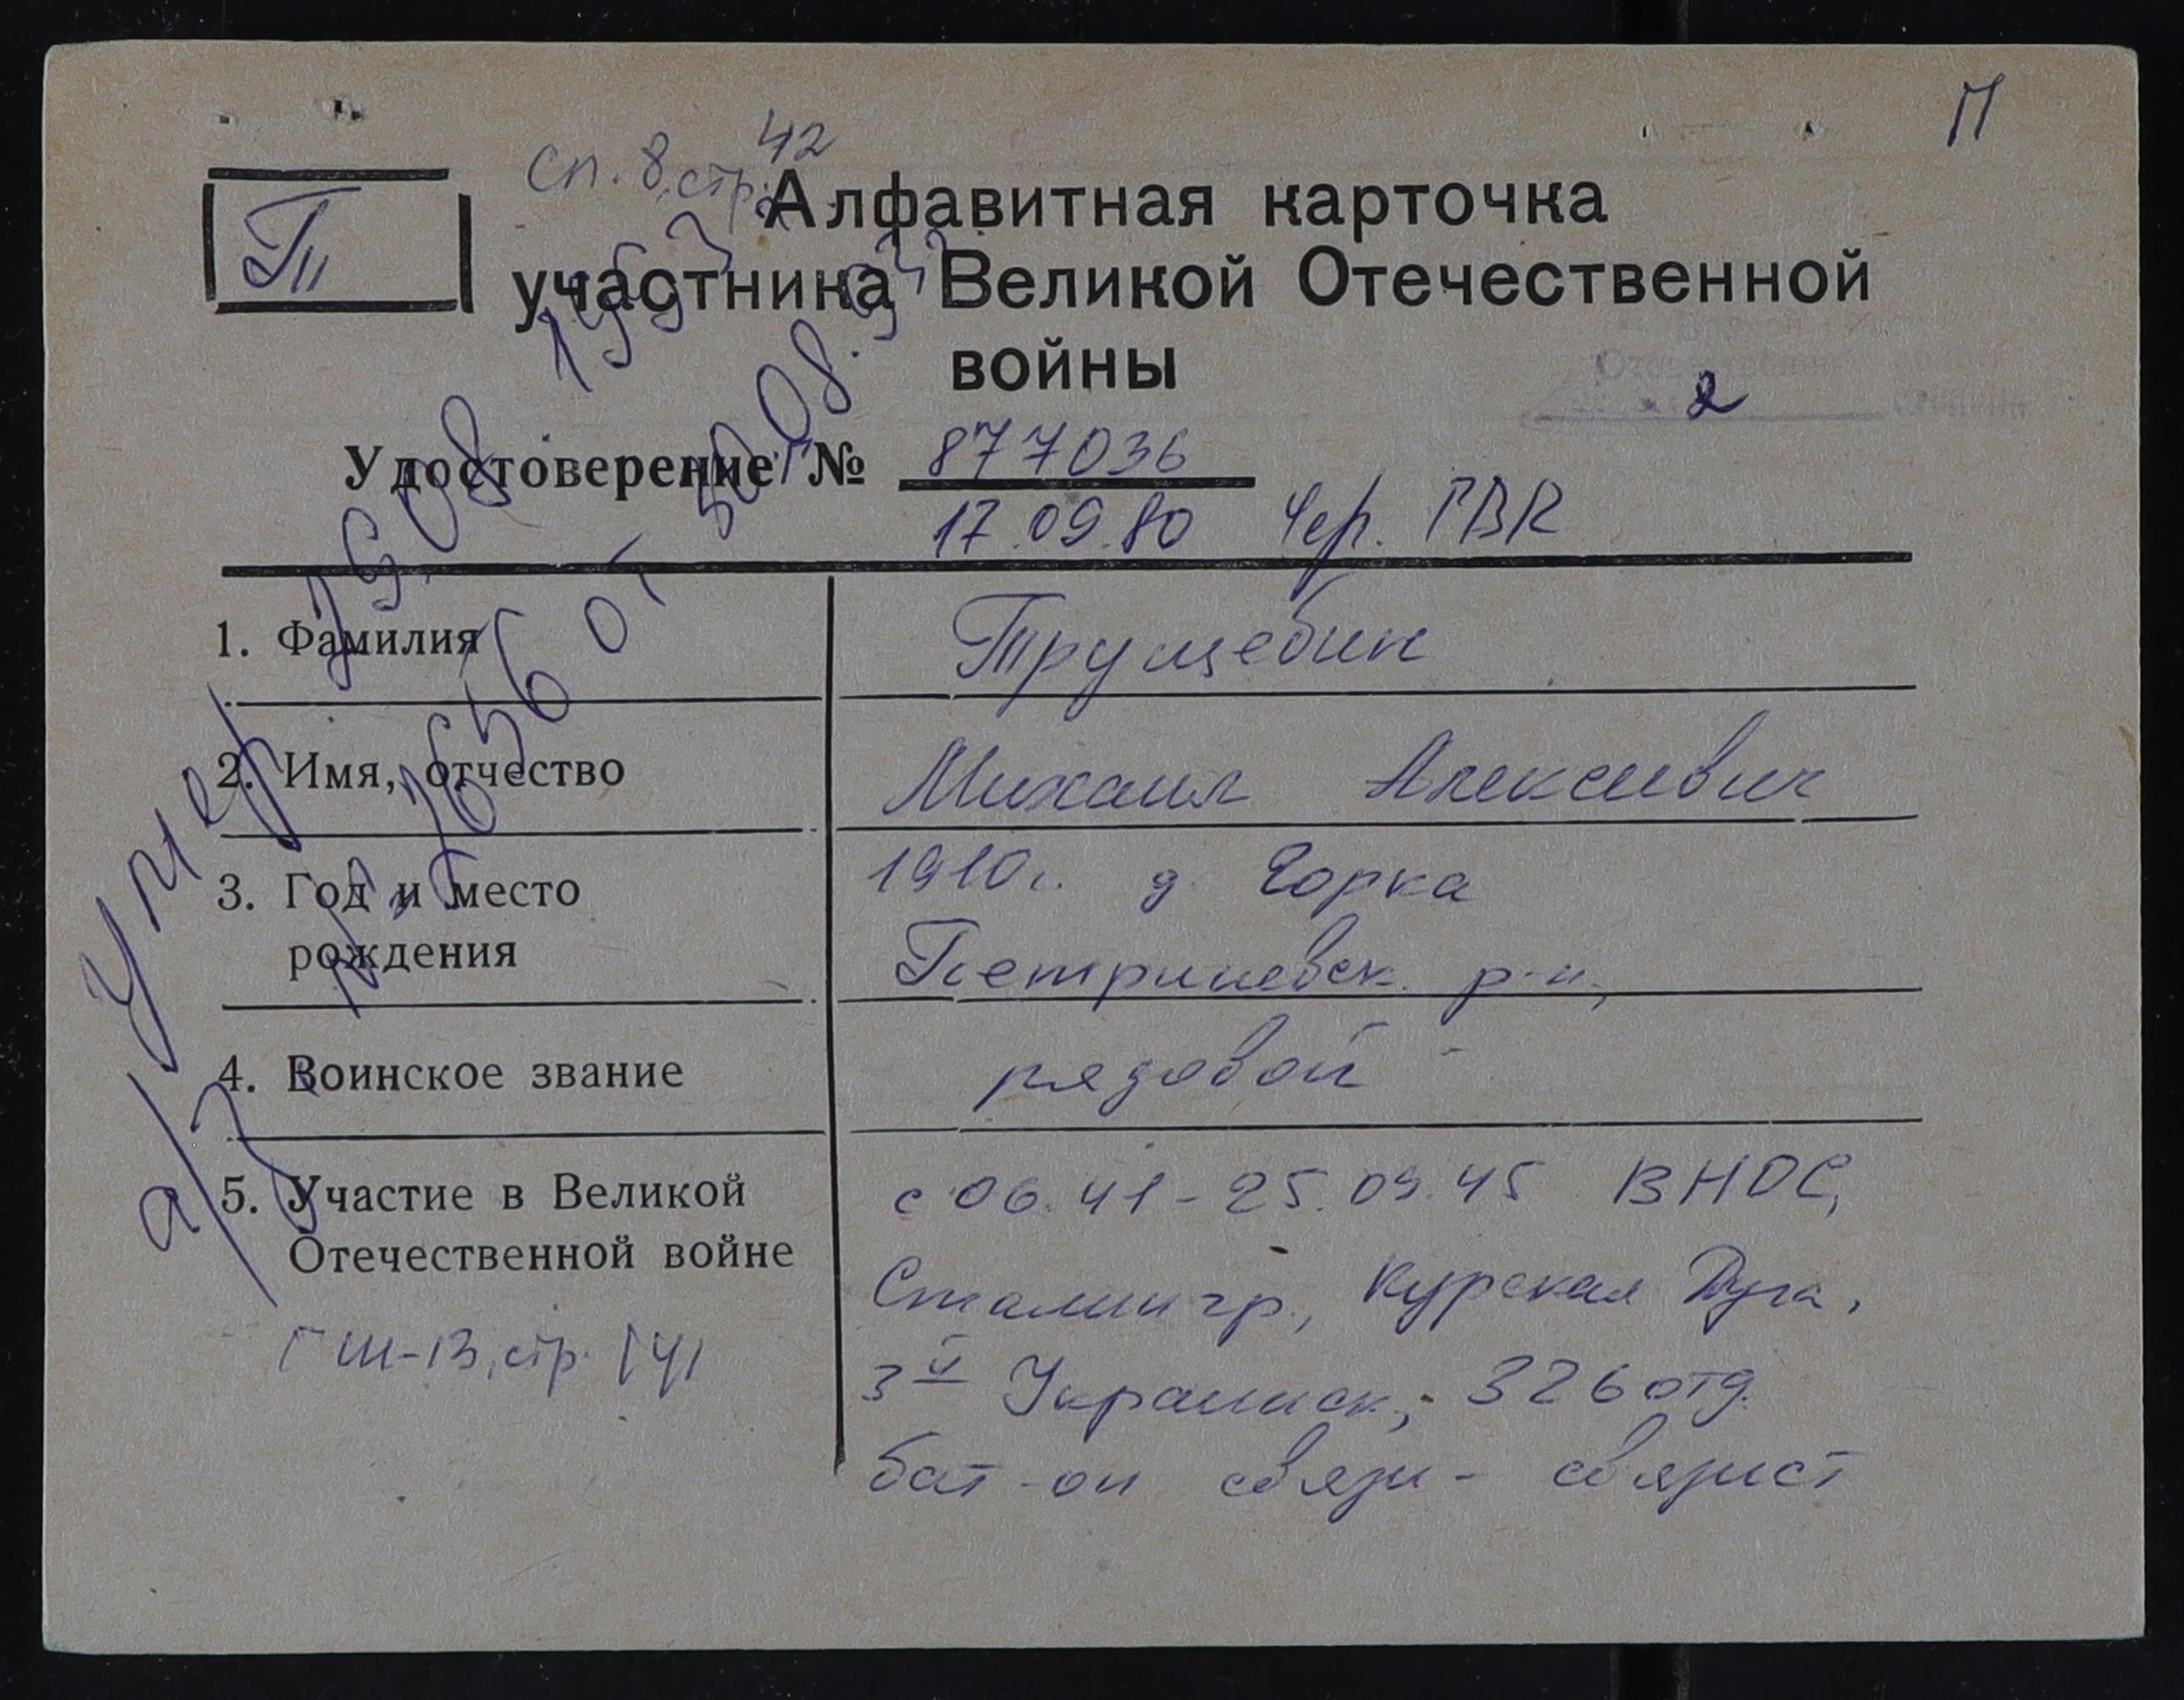 П
сп. 8, стр. 42
Тп
Алфавитная карточка
участника Великой Отечественной
войны
2
Удостоверение № 877036
17.09.80 Чер. ГВК
1. Фамилия Трущебин
2. Имя, отчество Михаил Алексеевич
3. Год и место 1910г. д. Горка
рождения Петриневск. р-н,
4. Воинское звание рядовой
5. Участие в Великой с 06.41-25.09.45 ВНОС,
Отечественной войне Сталингр., Курская Дуга,
ГШ-13, стр. 141 3й Украинск., 326 отд.
бат-он связи - связист
Умер
а/з